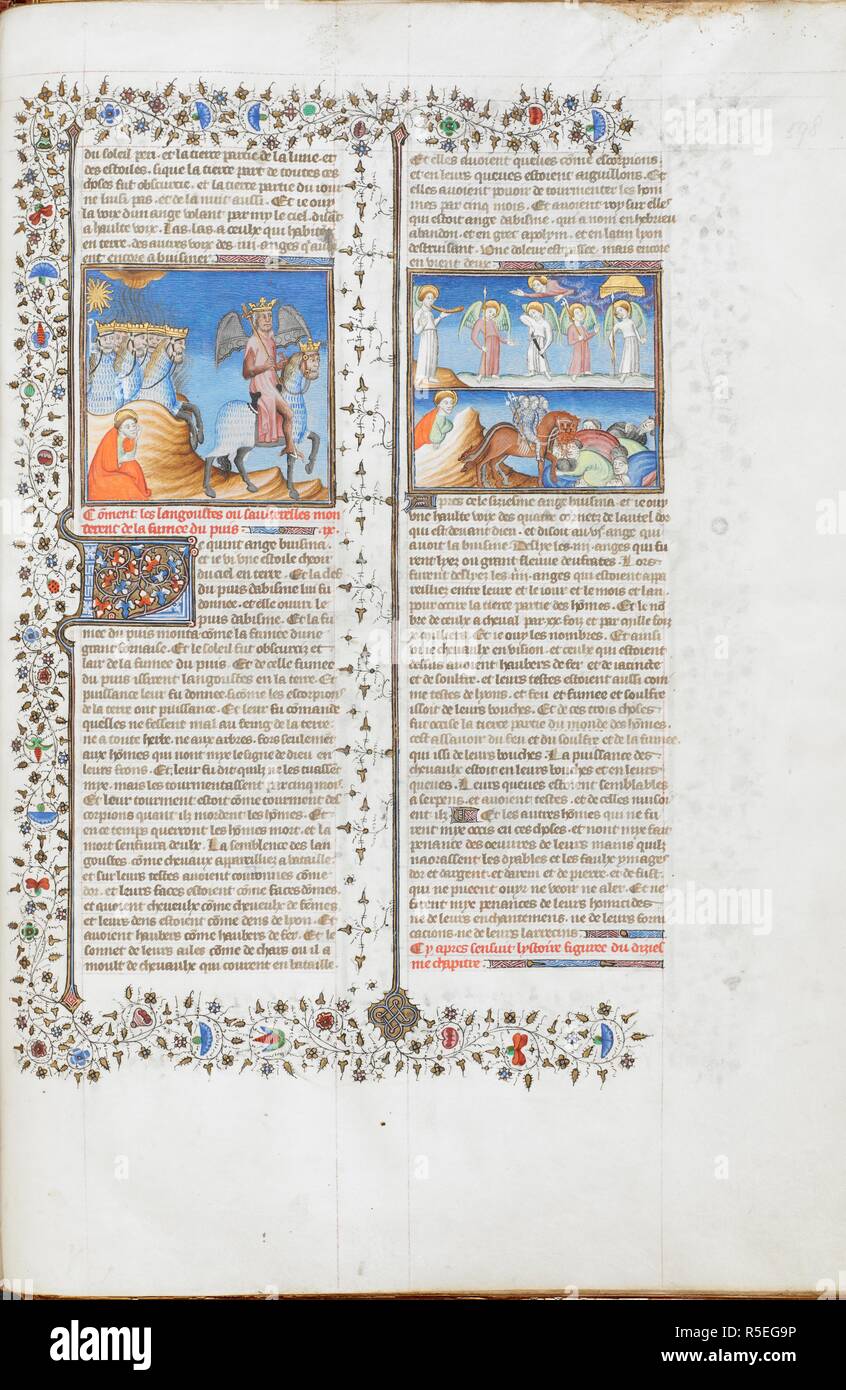 du soleil peri . et la tierce partie de la lune et
des estoiles . sique la tierce part de toutes ces
choses fut obscurcie . et la tierce partie du iour
ne luisi pas . et de la nuit aussi . Et ie ouy
la voix dun angre volant par my le ciel . disāt
a haulte voix . Las . las . a ceulx qui habitēt
en terre . des autres voix des .iij. anges q'au
ent encore a buisiner
Cōment les langoustes ou sauterelles mon
terent de la fumee du puis . ix .
Le quint ange buisina .
et ie vi une estoile cheoir
du ciel en terre . Et la clef
du puis dabisme lui fu
donnee . et elle ouvri le
puis dabisme . Et la fu
mee du puis monta cōme la fumee dune
grant fornaise . Et le soleil fut obscurci et
lair de la fumee du puis . Et de celle fumee
du puis issirent langoustes en la terre . Et
puissance leur fu donnee . sicōme les escorpions
de la terre ont puissance . Et leur fu cōmande
quelles ne fessent mal au feing de la terre .
ne a toute herbe . ne aux arbres . fors seulemēt
aux hōmes qui nont mye le signe de dieu en
leurs frons . Et leur fu dit quilz ne les tuassēt
mye . mais les tourmentassent par cinq mois .
Et leur tourment estoit cōme tourment des
scorpions quant ilz mordent les hōmes . Et
en ce temps querront les hōmes mort . et la
mort senfuira deulx . La semblence des lan
goustes cōme chevaux appareilliez a bataille .
et sur leurs testes avoient couronnes cōme
dor . et leurs faces estoient cōme faces dōmes .
et avoient cheveulx cōme cheveulx de fēmes .
et leurs dens estoient cōme dens de lyon . Et
avoient haubers cōme haubers de fer . Et le
sonnet de leurs ailes cōme de chars ou il a
moult de chevaulx qui courent en bataille .
Et elles avoient queues cōme escorpions .
et en leurs queues estoient aiguillons . Et
elles avoient pouoir de tourmenter les hom
mes par cinq mois . Et avoient roy sur elles
qui estoit ange dabisme . qui a nom en hebrieu
abandon . et en grec apolym . et en latin lyon
destruisant . Une doleur est passee . mais encore
en vient deux
Apres ce le siziesme ange buisina . et ie ouy
une haulte voix des quatre cornetz de lautel dor
qui est devant dieu . et disoit au .vj. ange qui
avoit la buisine . Deslye les .iiij. anges qui fu
rent lyez ou grant fleuve deufrates . Lors
furent deslyez les .iiij. anges qui estoient appa
reilliez entre leure et le iour et le mois et lan .
pour occire la tierce partie des hōmes . Et le nō
bre de ceulx a cheval par .xx. foiz et par mille foiz
.x. milliers . Et ie ouy les nombres . Et ainsi
vi ie chevaulx en vision . et ceulx qui estoient
dessus avoient haubers de fer et de iacincte
et de soulfre . et leurs testes estoient aussi com
me testes de lyons . et feu et fumee et soulfre
issoit de leurs bouches . Et de ces trois choses
fut occise la tierce partie du monde des hōmes .
cest assavoir du feu et du soulfre et de la fumee .
qui issi de leurs bouches . La puissance des
chevaulx estoit en leurs bouches et en leurs
queues . Leurs queues estoient semblables
a serpens . et avoient testes . et de celles nuisoi
ent ilz . Et les autres hōmes qui ne fu
rent mye occis en ces choses . et nont mye fait
penance des oeuvres de leurs mains quilz
naorassent les dyables et les faulx ymages
dor et dargent . et darem et de pierre . et de fust .
qui ne pueent ouyr ne veoir ne aler . Et ne
firent mye penances de leurs homicides
ne de leurs enchantemens . ne de leurs forni
cacions . ne de leurs larrecins .
Cy apres sensuit lystoire figuree du dizies
me chapitre .
198
alamy
Image ID: R5EG9P
www.alamy.com